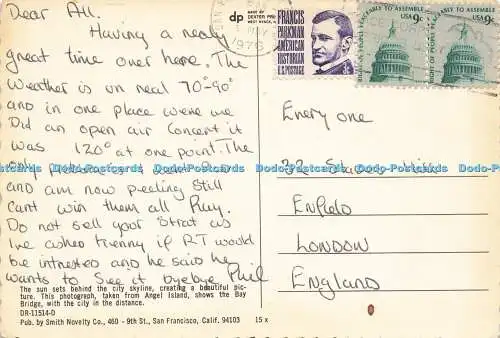 Dear All.
Having a really
great time over here. The
Weather is un real 70°-90°
and in one place were we
Did an open air Concert it
was 120° at one point. The
only
and am now peeling still
Cant win them all Ray.
Do not sell your Strat as
Ive asked Kenny if RT would
be intrested and he said he
wants to See it byebye Phil
The sun sets behind the city skyline, creating a beautiful pic-
ture. This photograph, taken from Angel Island, shows the Bay
Bridge, with the city in the distance.
DR-11514-D
Pub. by Smith Novelty Co., 460 - 9th St., San Francisco, Calif. 94103 15 x
dp MADE BY
DEXTER PRESS
WEST NYACK, N.Y.
1976
FRANCIS
PARKMAN
AMERICAN
HISTORIAN
U.S. POSTAGE
3c
PEACEABLY TO ASSEMBLE
USA 9c
RIGHT OF PEOPLE
PEACEABLY TO ASSEMBLE
USA 9c
RIGHT OF PEOPLE
Every one
Enfield
LONDON
ENGLAND
Dodo-Postcards Dodo-Postcards Dodo-Postcards Dodo-Postcards